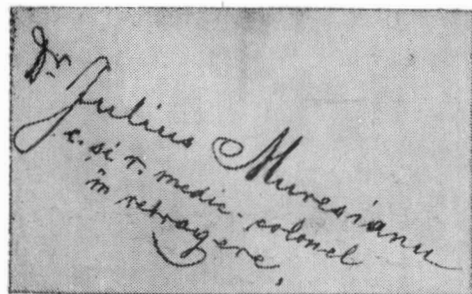 Dr Julius Muresianu
c. și r. medic-colonel
în retragere,